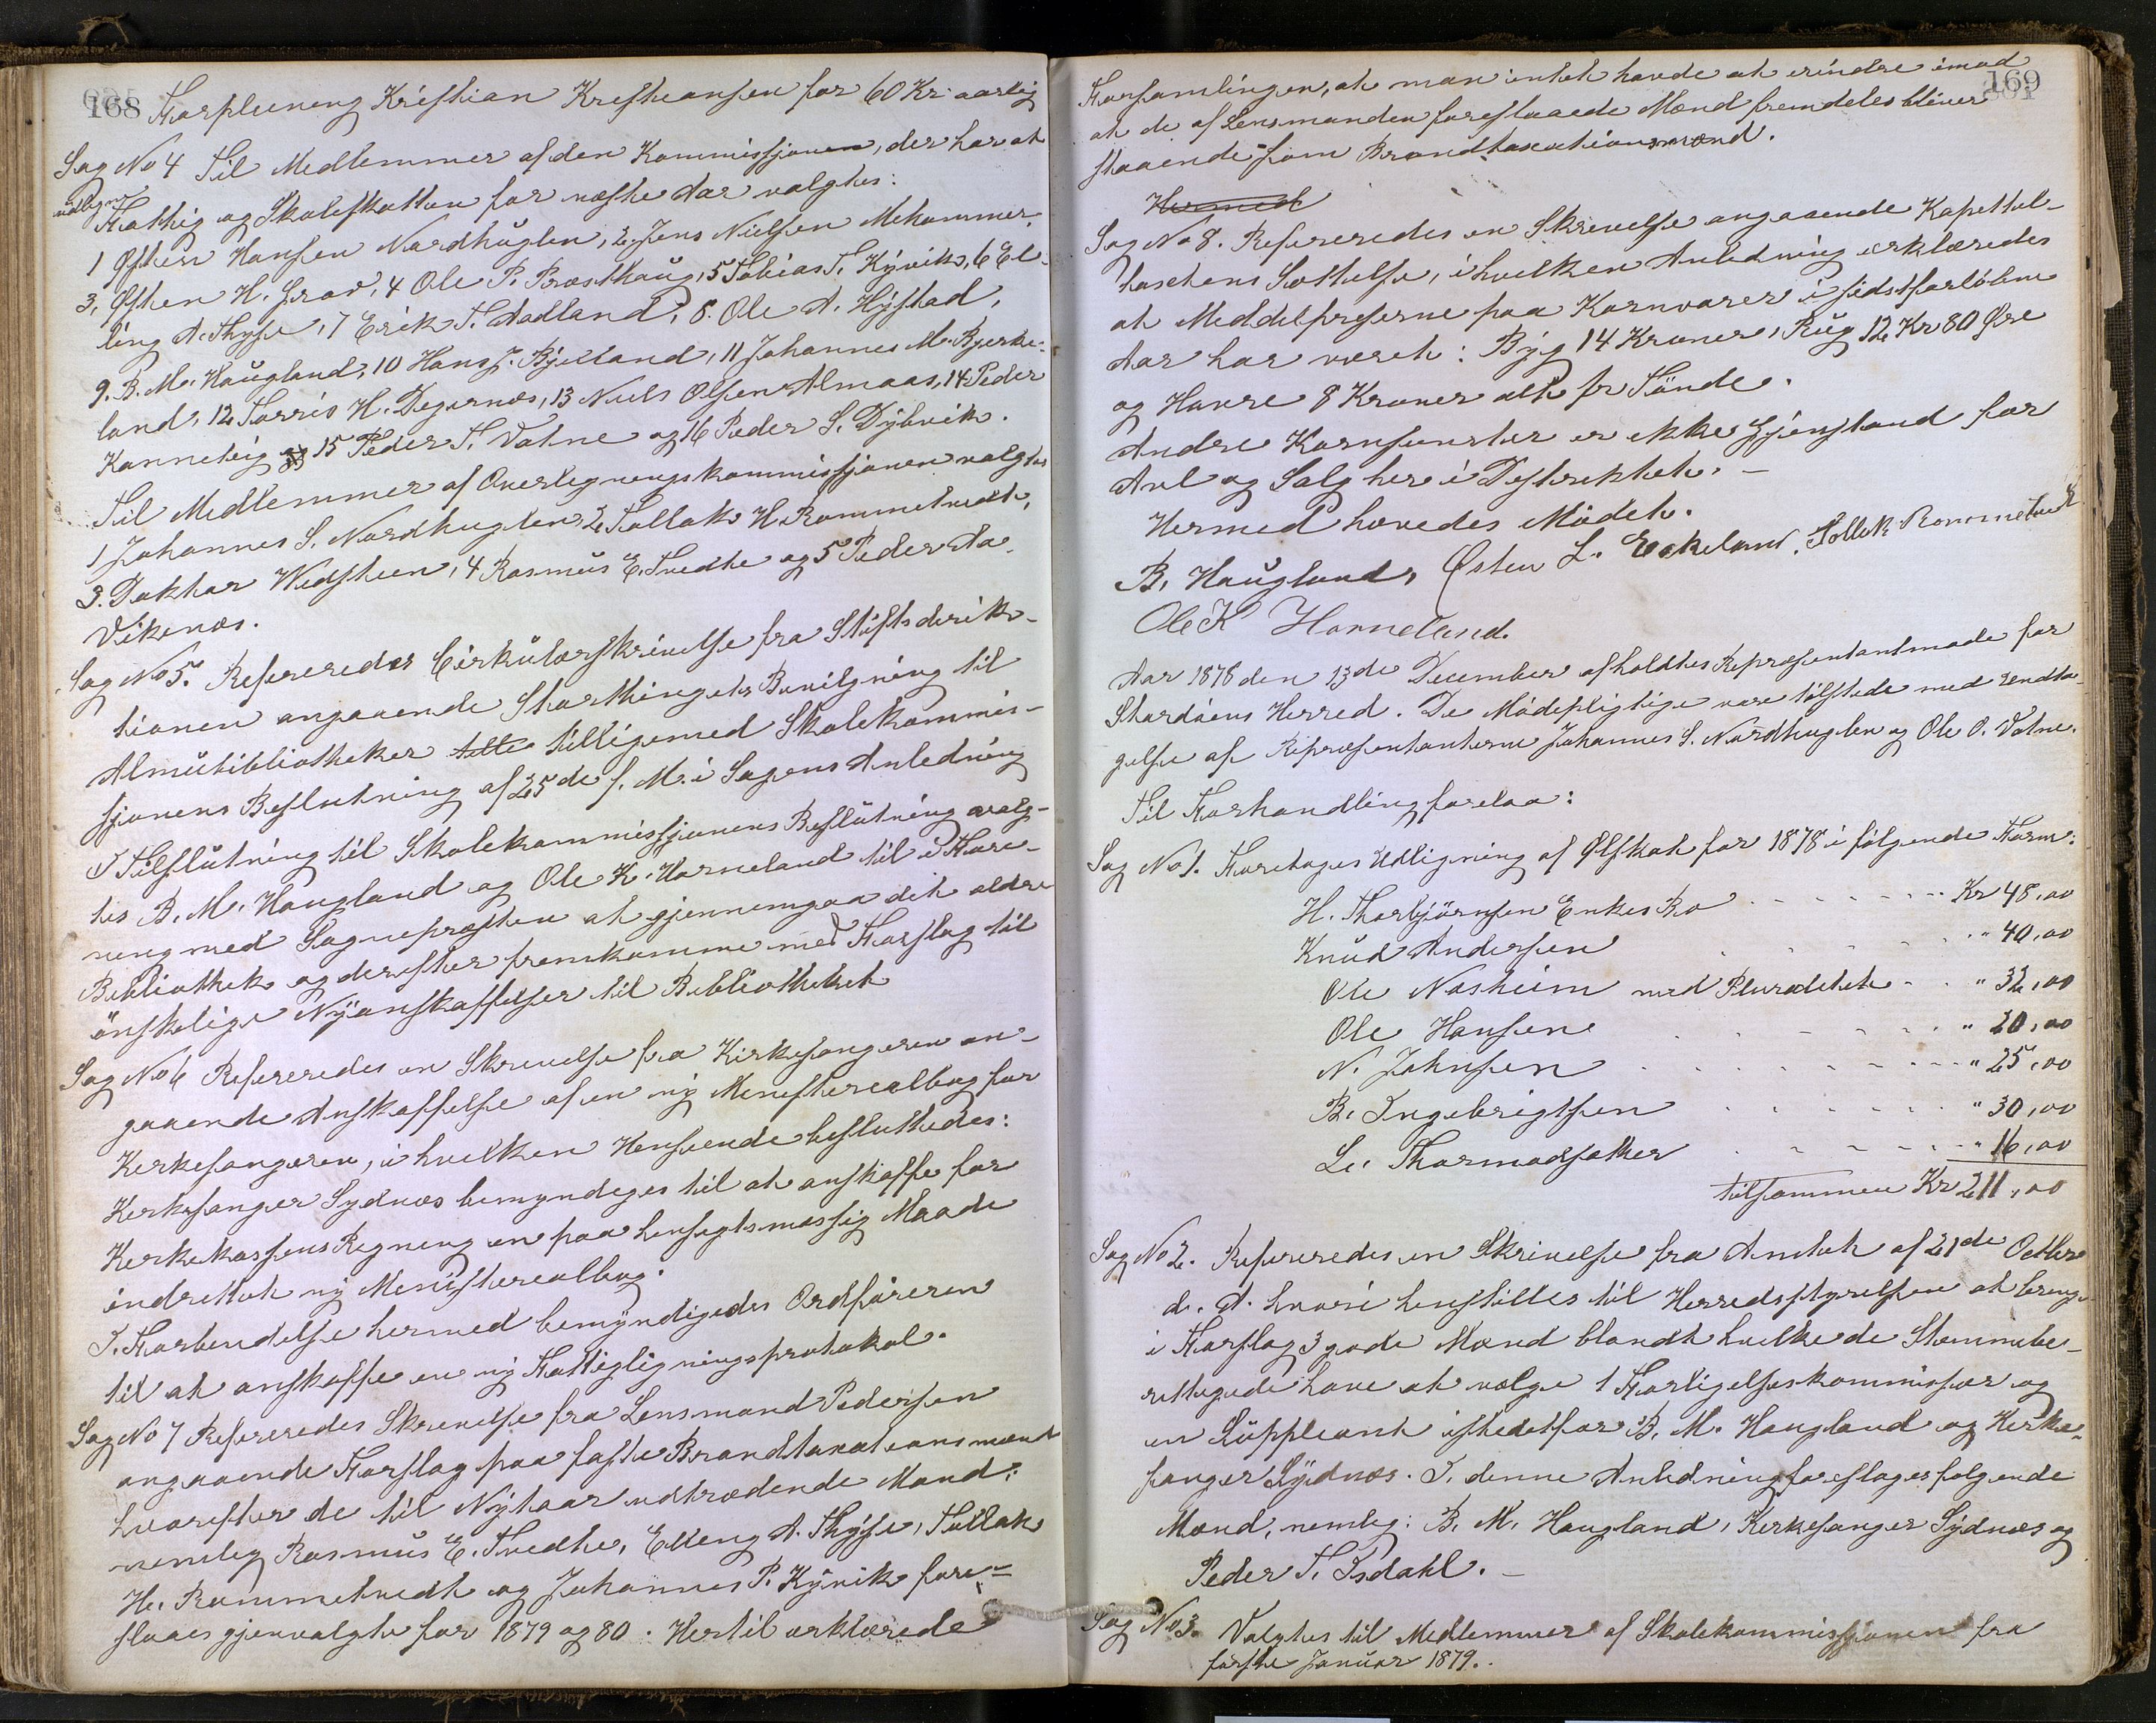 168 Forpleining Kristian Kristiansen for 60 Kr. aarlig
Sag No 4 Til Medlemmer af den Kommissjonen, der har at
udligne
Fattig og Skoleskatten for næste Aar valgtes:
1 Østen Hansen Nordhuglen, 2. Jens Nielsen Mehammer,
3, Østen H. Grov, 4 Ole P. Brosthaug, 5 Tobias T. Kyvik, 6 El-
ling A. Thyse, 7 Erik T. Aadland, 8. Ole A. Hystad,
9. B. M. Haugland, 10 Hans J. Bjelland, 11 Johannes M. Bjerke-
land, 12 Torris H. Degernæs, 13 Niels Olsen Almaas, 14 Peder
Hanneteig og 15 Peder T. Vatne og 16 Peder S. Dybvik.
Til Medlemmer af Overligningskommissjonen valgtes
1 Johannes S. Nordhuglen, 2, Tollak H. Rommetvedt,
3. Doktor Widsteen, 4 Rasmus E. Tvedte og 5 Peder Aa-
Vikenæs.
Sag No 5. Refereredes Cirkulærskrivelse fra Stiftsdirek-
tionen angaaende Storthingets Bevilgning til
Almubibliotheker tette tilligemed Skolekommis-
sjonens Beslutning af 25de f. M. i Sagens Anledning
I Tilslutning til Skolekommissjonens Beslutning valg-
tes B. M. Haugland og Ole K. Horneland til i Fore-
ning med Sognepresten at gjennemgaa det ældre
Bibliothek og derefter fremkomme med Forslag til
ønskelige Nyanskaffelser til Bibliotheket
Sag No 6 Refereredes en Skrivelse fra Kirkesangeren an-
gaaende Anskaffelse af en ny Ministerialbog for
Kirkesangeren, i hvilken Henseende besluttedes:
Kirkesanger Sydnæs bemyndiges til at anskaffe for
Kirkekassens Regning en paa hensigtsmæssig Maade
indrettet ny Ministerialbog.
I. Forbindelse hermed bemyndigedes Ordføreren
til at anskaffe en ny Fattigligningsprotokol.
Sag No 7 Refereredes Skrivelse fra Lensmand Pedersen
angaaende Forslag paa faste Brandtaxationsmænd
hvorefter de til Nytaar udtrædende Mænd:
nemlig Rasmus E. Tvedte, Elling A. Thyse, Tollak
H. Rommetvedt og Johannes P. Kyvik fore-
slaaes gjenvalgte for 1879 og 80. Hertil erklærede
169
Forsamlingen, at man intet havde at erindre imod
at de af Lensmanden foreslaaede Mænd fremdeles bliver
staaende som Brandtaxationsmænd.
Hermed
Sag No 8. Refereredes en Skrivelse angaaende Kapittel-
taxtens Sættelse, i hvilken Anledning erklæredes
at Middelpriserne paa Kornvarer i sidstforløbne
Aar har været: Byg 14 Kroner, Rug 12 Kr 80 Øre
og Havre 8 Kroner alt pr Tønde.
Andre Kornsorter er ikke Gjenstand for
Avl og Salg her i Distriktet. –
Hermed hævedes Mödet.
B. Haugland, Østen L. Eskeland. Tollak Rommetvedt
Ole K Horneland.
Aar 1878 den 13de December afholdtes Repræsentantmøde for
Stordøens Herred. De Mødepligtige vare tilstede med Undta-
gelse af Repræsentanterne Johannes S. Nordhuglen og Ole O. Vatne.
Til Forhandling forelaa:
Sag No 1. Foretoges Udligning af Ølskat for 1878 i følgende Form:
H. Thorbjørnsen Enkes Bo - - - - - - - Kr 48,00
Knud Andersen . . . . . . . " 40,00
Ole Nosheim med - - - " 32,00
Ole Hansen . . . . . . " 20,00
N. Johnsen . . . . . . . . " 25,00
B. Ingebrigtsen . . . . . . " 30,00
L. Thormodsæther . . . . . . " 16,00
tilsammen Kr 211,00
Sag No 2. Refereredes en Skrivelse fra Amtet af 21de Octbr
d. A. hvori henstilles til Herredsstyrelsen at bringe
i Forslag 3 gode Mænd blandt hvilke de Stemmebe-
rettigede have at vælge 1 Forligelseskommissær og
en Suppleant istedetfor B. M. Haugland og Kirke-
sanger Sydnæs. I. denne Anledning foreslages følgende
Mænd, nemlig: B. M. Haugland, Kirkesanger Sydnæs og
Peder T. Isdahl. –
Sag No 3. Valgtes til Medlemmer af Skolekommissjonen fra
første Januar 1879.